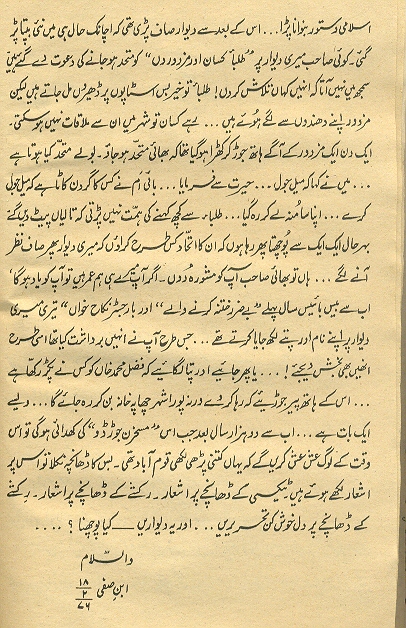 اسلامی دستور بنوانا پڑا... اس کے بعد سے دیوار صاف پڑی تھی کہ اچانک حال ہی میں نئی بپتا پڑ
گئی۔ کوئی صاحب میری دیوار پر "طلبا' کسان اور مزدوروں" کو متحد ہو جانے کی دعوت دے گئے ہیں
سمجھ میں نہیں آتا کہ انہیں کہاں تلاش کروں! طلبا' تو خیر بس اسٹاپوں پر ڈھیروں مل جاتے ہیں لیکن
مزدور اپنے دھندوں سے لگے ہوئے ہیں... رہے کسان تو شہر میں ان سے ملاقات نہیں ہو سکتی۔
ایک دن ایک مزدور کے آگے ہاتھ جوڑ کر کھڑا ہو گیا تھا کہ بھائی متحد ہو جاؤ۔ بولے متحد کیا ہوتا ہے
... میں نے کہا کہ میل جول... حیرت سے فرمایا... بائی ام نے کس کا گردن کاٹا ہے کہ میل جول
کرے... اپنا سا منہ لے کر رہ گیا... طلباء سے کچھ کہنے کی ہمت نہیں پڑتی کہ تالیاں پیٹ دیں گے
بہرحال ایک ایک سے پوچھتا پھر رہا ہوں کہ ان کا اتحاد کس طرح کراؤں کہ میری دیوار پھر صاف نظر
آنے لگے... ہاں تو بھائی صاحب آپ کو مشورہ دوں۔ اگر آپ میرے ہی ہم عمر ہیں تو آپ کو یاد ہو گا'
اب سے بیس بائیس سال پہلے "بے ضرر ختنہ کرنے والے" اور بار جسٹر نکاح خواں" تیری میری
دیوار پر اپنے نام اور پتے لکھ جایا کرتے تھے... جس طرح آپ نے انہیں برداشت کیا تھا اسی طرح
انھیں بھی بخش دیجئے!... یا پھر جائیے اور پتا لگائیے کہ فضل محمد خاں کو کس نے پکڑ رکھا ہے
... اس کے ہاتھ پیر جوڑیئے کہ رہا کر دے ورنہ پورا شہر چھاپہ خانہ بن کر رہ جائے گا... ویسے
ایک بات ہے... اب سے دو ہزار سال بعد جب اس "مسخرن جوڑڈو" کی کھدائی ہو گی تو اس
وقت کے لوگ عش عش کریں گے کہ یہاں کتنی پڑھی لکھی قوم آباد تھی۔ بس کا ڈھانچہ نکلا تو اس پر
اشعار لکھے ہوئے ہیں۔ ٹیکسی کے ڈھانچے پر اشعار۔ رکشے کے ڈھانچے پر اشعار۔ رکشے
کے ڈھانچے پر دل خوش کن تحریریں... اور یہ دیواریں — کیا پوچھنا؟....
والسّلام
ابن صفی ۱۸/۲/۷۶